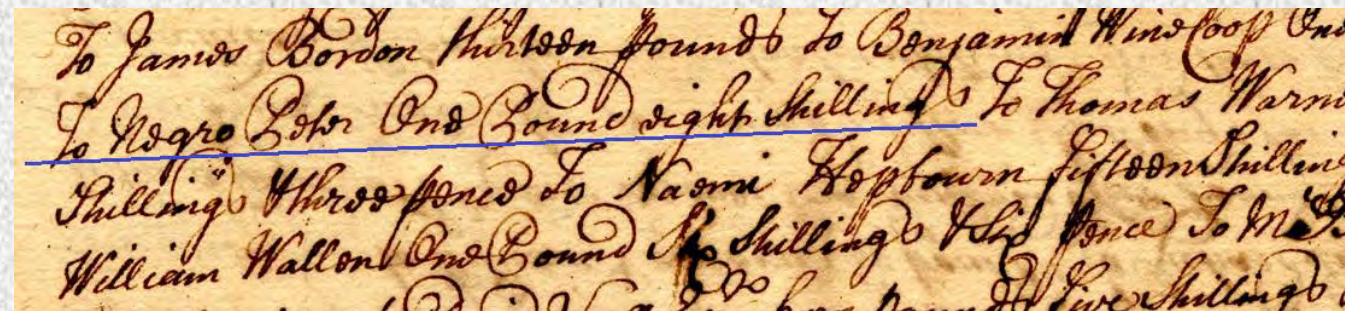 To James Bordon thirteen pounds to Benjamin Wine Coop One
To Negro Peter One Pound eight shillings To Thomas Warn
Shillings & three pence To Naomi Hepbourn fifteen Shillin
William Wallen One Pound Six Shillings & Six pence To
pounds five Shillings